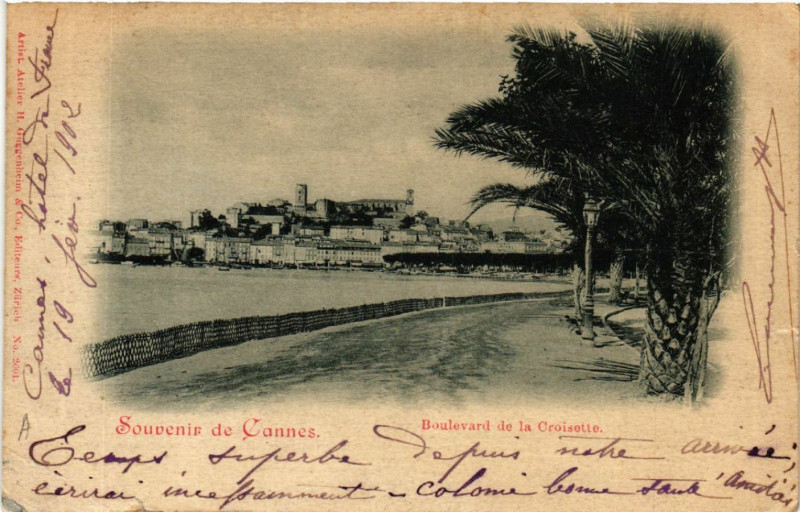 Artist. Atelier H. Guggenheim & Co., Editeurs, Zürich No. 2001.
Cannes hotel de France
le 19 fév. 1902
Souvenir de Cannes.
Boulevard de la Croisette.
A
Temps superbe depuis notre arrivée,
écrirai incessamment - colonie bonne santé Amitiés